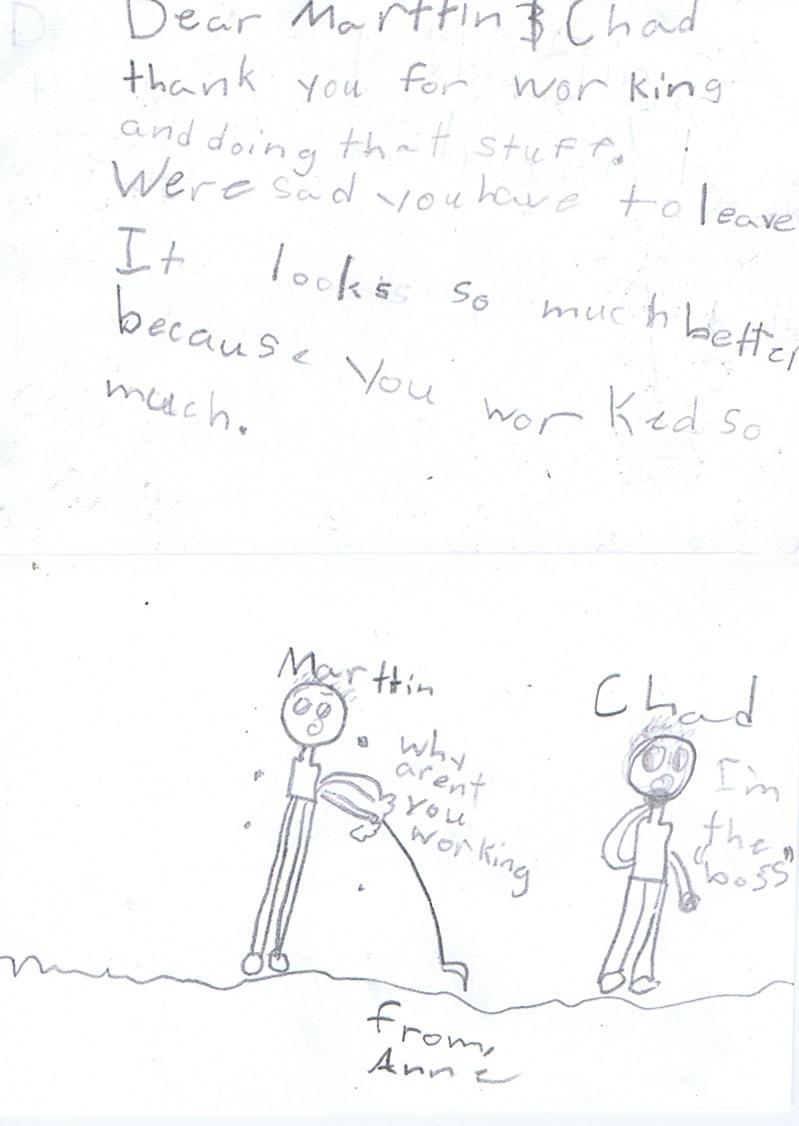 Dear Marttin & Chad
thank you for working
and doing that stuff.
Were sad you have to leave
It looks so much better
because you worked so
much.
Marttin
Chad
why
arent
you
working
I'm
the
"boss"
from,
Anne